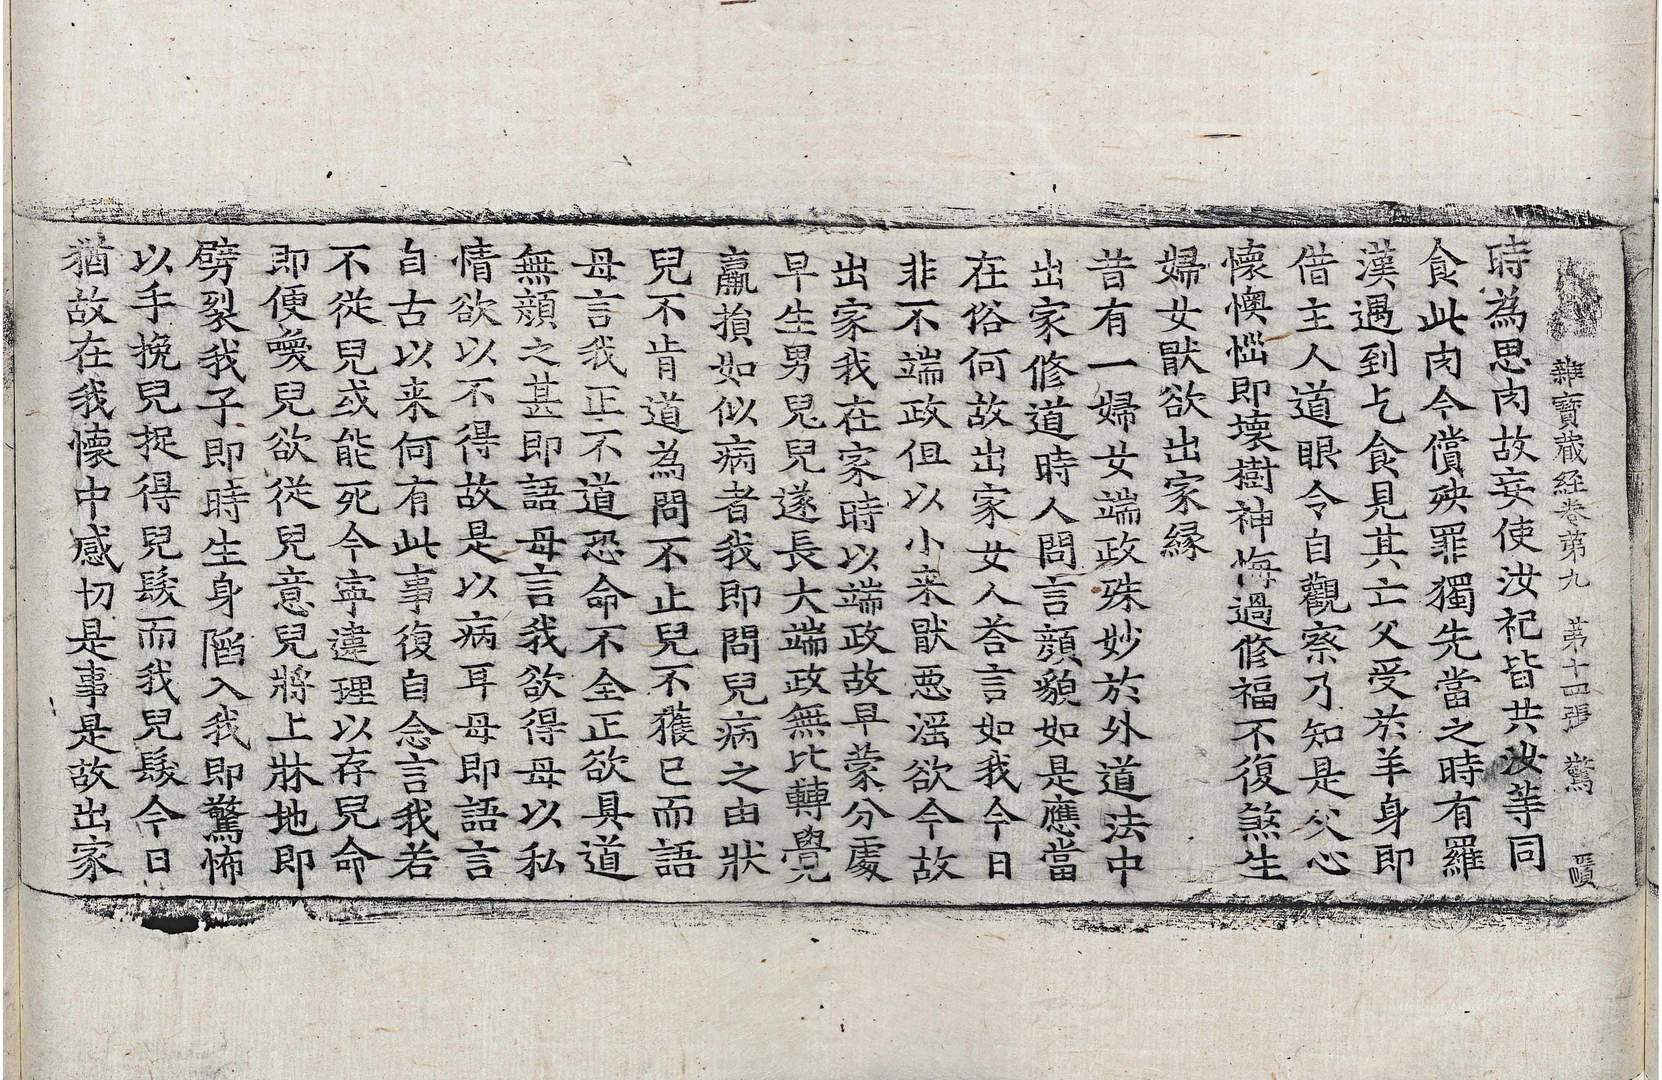 雜寶藏經卷第九 第十四張 驚
時為思肉故妄使汝祀皆共汝䓁同
食此肉今償殃罪獨先當之時有羅
漢遇到乞食見其亡父受於羊身即
借主人道眼令自觀察乃知是父心
懷懊惱即壞樹神悔過修福不復煞生
婦女猒欲出家緣
昔有一婦女端政殊妙於外道法中
出家修道時人問言顔貌如是應當
在俗何故出家女人荅言如我今日
非不端政但以小来猒惡滛欲今故
出家我在家時以端政故早蒙分處
早生男兒兒遂長大端政無比轉覺
羸損如似病者我即問兒病之由狀
兒不肯道為問不止兒不獲已而語
母言我正不道恐命不全正欲具道
無顔之甚即語母言我欲得母以私
情欲以不得故是以病耳母即語言
自古以来何有此事復自念言我若
不從兒或能死今寧違理以存兒命
即便喚兒欲從兒意兒將上牀地即
劈裂我子即時生身陷入我即驚怖
以手挽兒捉得兒髮而我兒髮今日
猶故在我懷中感切是事是故出家